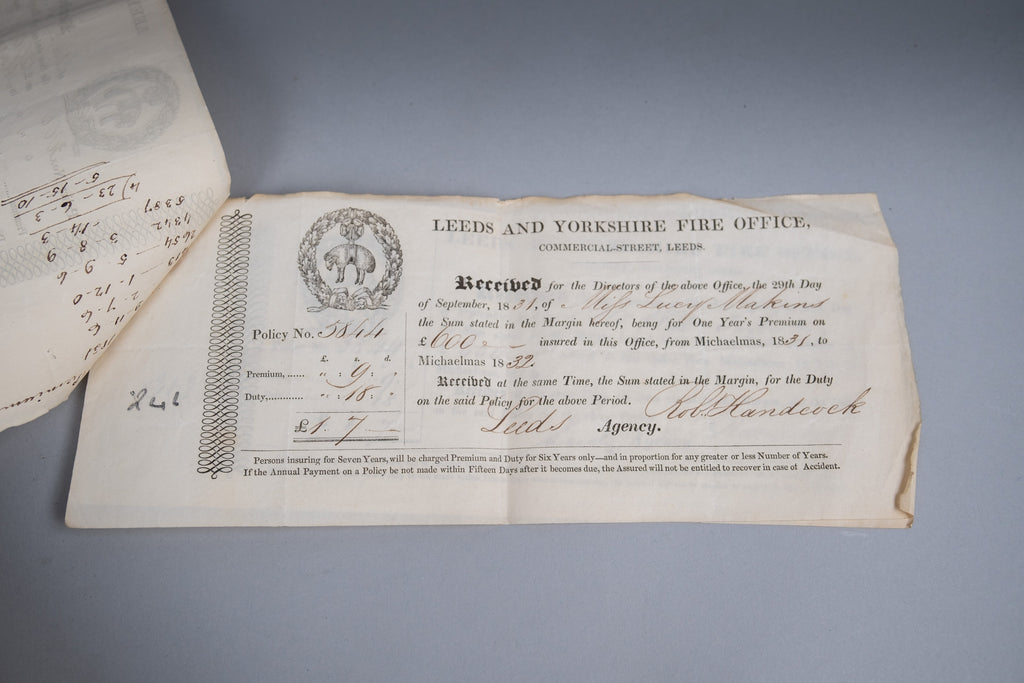 LEEDS AND YORKSHIRE FIRE OFFICE,
COMMERCIAL-STREET, LEEDS.
Received for the Directors of the above Office, the 29th Day
of September, 1831, of Miss Lucy Makins
the Sum stated in the Margin hereof, being for One Year's Premium on
£ 600 insured in this Office, from Michaelmas, 1831, to
Michaelmas 1832.
Received at the same Time, the Sum stated in the Margin, for the Duty
on the said Policy for the above Period. Robt Handcock
Leeds Agency.
Policy No. 3844
£. s. d.
Premium,...... " : 9 : "
Duty,............ " : 18 : "
£ 1. 7 —
Persons insuring for Seven Years, will be charged Premium and Duty for Six Years only—and in proportion for any greater or less Number of Years.
If the Annual Payment on a Policy be not made within Fifteen Days after it becomes due, the Assured will not be entitled to recover in case of Accident.
Premium
1831
5387
4342
4) 23 - 6 - 3
5 - 15 - 10